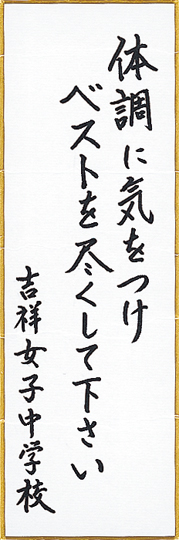 体調に気をつけ
ベストを尽くして下さい
吉祥女子中学校